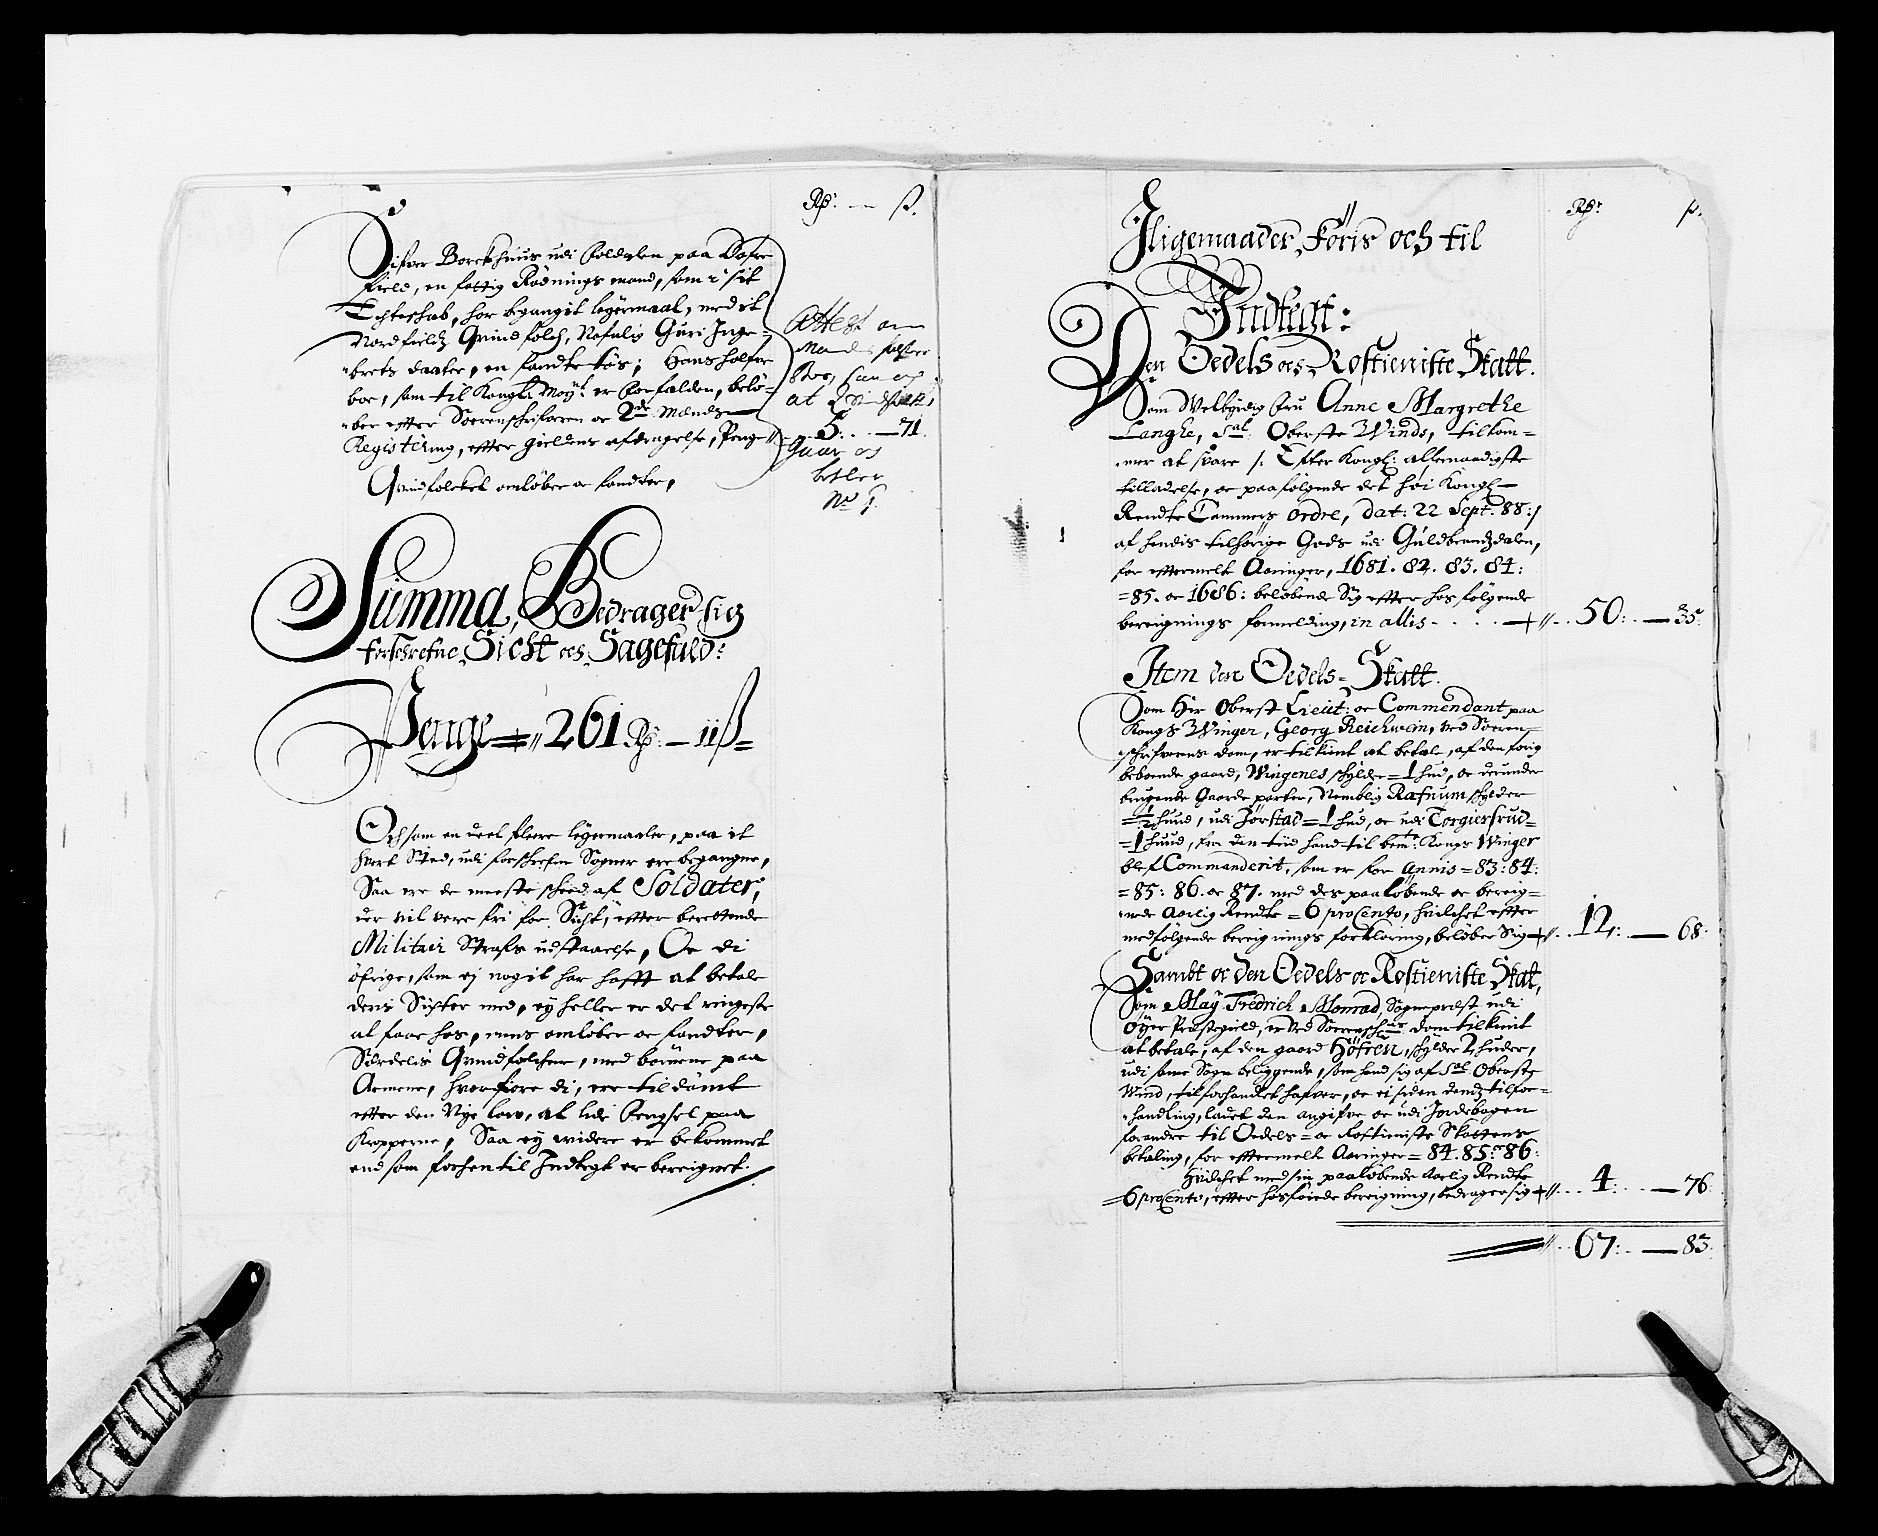 Rd: — ß.
Sifver Borckhuus udi Foldalen paa Dofre
field, en fattig Rødnings mand, som i sit
Echteskab, har begangit legermaal, med it
Nordfieldz Qvindfolch, Nafnlig Guri Inge=
brets daater, en landte tøs; Hans halfve
boe, som til Kongl: Mayt: er forfalden, belø=
ber efter Sorenschrifveren oc 2de Mænds
Registering, efter gieldens afdragelse, Penge // .. 5: .. — 71.
Qvindfolcket omløber oc landter,
Attest om
at
betler
No 9.
Summa, Bedrager sig
forschrefne Sicht och Sagefald:
Penge // 261 Rd: — 11 ß =
Och som en deel fleere legermaaler, paa it
hvert Sted, udi forschrefne Sogner ere begangne,
Saa ere de meeste scheed af Soldater,
der vil vere fri for Sicht, efter berettende
Militair Straffs udstaaelse, Oc di
øfrige, som ej nogit har hafft at betale
deris Sichter med, ey heller er det ringeste
at faae hos, mens omløber oc landter,
Særdelis Qvindfolchene, med børnene paa
Armene, hvorfore di, ere tildømt
efter den Nye lov, at lide Fengsel paa
Kropperne, Saa ey widere er bekommet
end som forhen til Indtegt er bereignet.
Rd: ß.
Iligemaader, Føris och til
Indtegt:
Den Oedels och Rostienste Skatt.
Som Welbyrdig Fru Anne Margrethe
Langhe, Sal: Oberste Winds, tilkom=
mer at svare /: Efter Kongl: allernaadigste
tilladelse, oc paafølgende det høi Kongl:
Rendte Cammers ordre, dat: 22 Sept: 88 :/
af hendis tilhørige Gods udi Guldbrandzdalen,
for eftermelte Aaringer, 1681. 82. 83. 84:
=85. oc 1686: beløbende Sig efter hos følgende
bereignings formelding, in allis . . . . // .. 50: — 35:
Item den Oedels= Skatt.
Som Her Oberst Lieut: oc Commendant paa
Kongs Winger, Georg Reichwein, ved Soren=
schrifverens dom, er tilkiint at betale, af den forig
beboende gaard, Wingenes schylder = 1 hud, oc derunder
brugende Gaarde parter, Nemblig Rafnum schylder
= ½ huud, udi Jørstad = 1 hud, oc udi Torgiersrud=
= 1 huud, fra den tiid hand til bemte: Kongs Winger
blef Commanderit, som er for Annis = 83: 84:
= 85: 86. oc 87. med des paaløbende oc bereig=
nede Aarlig Rendte = 6 pro Cento, hvilchet efter
medfølgende bereignings forklaring, beløber Sig // .. 12: — 68.
Sambt oc den Oedels oc Rostieniste Skat,
Som May Fredrich Monrad, Sogneprest udi
Øyer Prestegield, er ved Sorensch: dom tilkiint
at betale, af den gaard Høfren, schylder 2 huder,
udi same Sogn beliggende, som hand sig af Sal: Oberste
Wind, tilforhandlet hafver, oc ei siden dendz tilfor=
handling, ladet den angifve oc udi Jordebogen
forandre til Oedels= oc Rostieniste Skattens
betaling, for efftermelte Aaringer = 84. 85. oc 86:
Hvilchet med sin paaløbende Aarlig Rendte
= 6 pro Cento, efter hosføiede bereigning, bedrager sig // ... 4: — 76.
// .. 67: — 83.